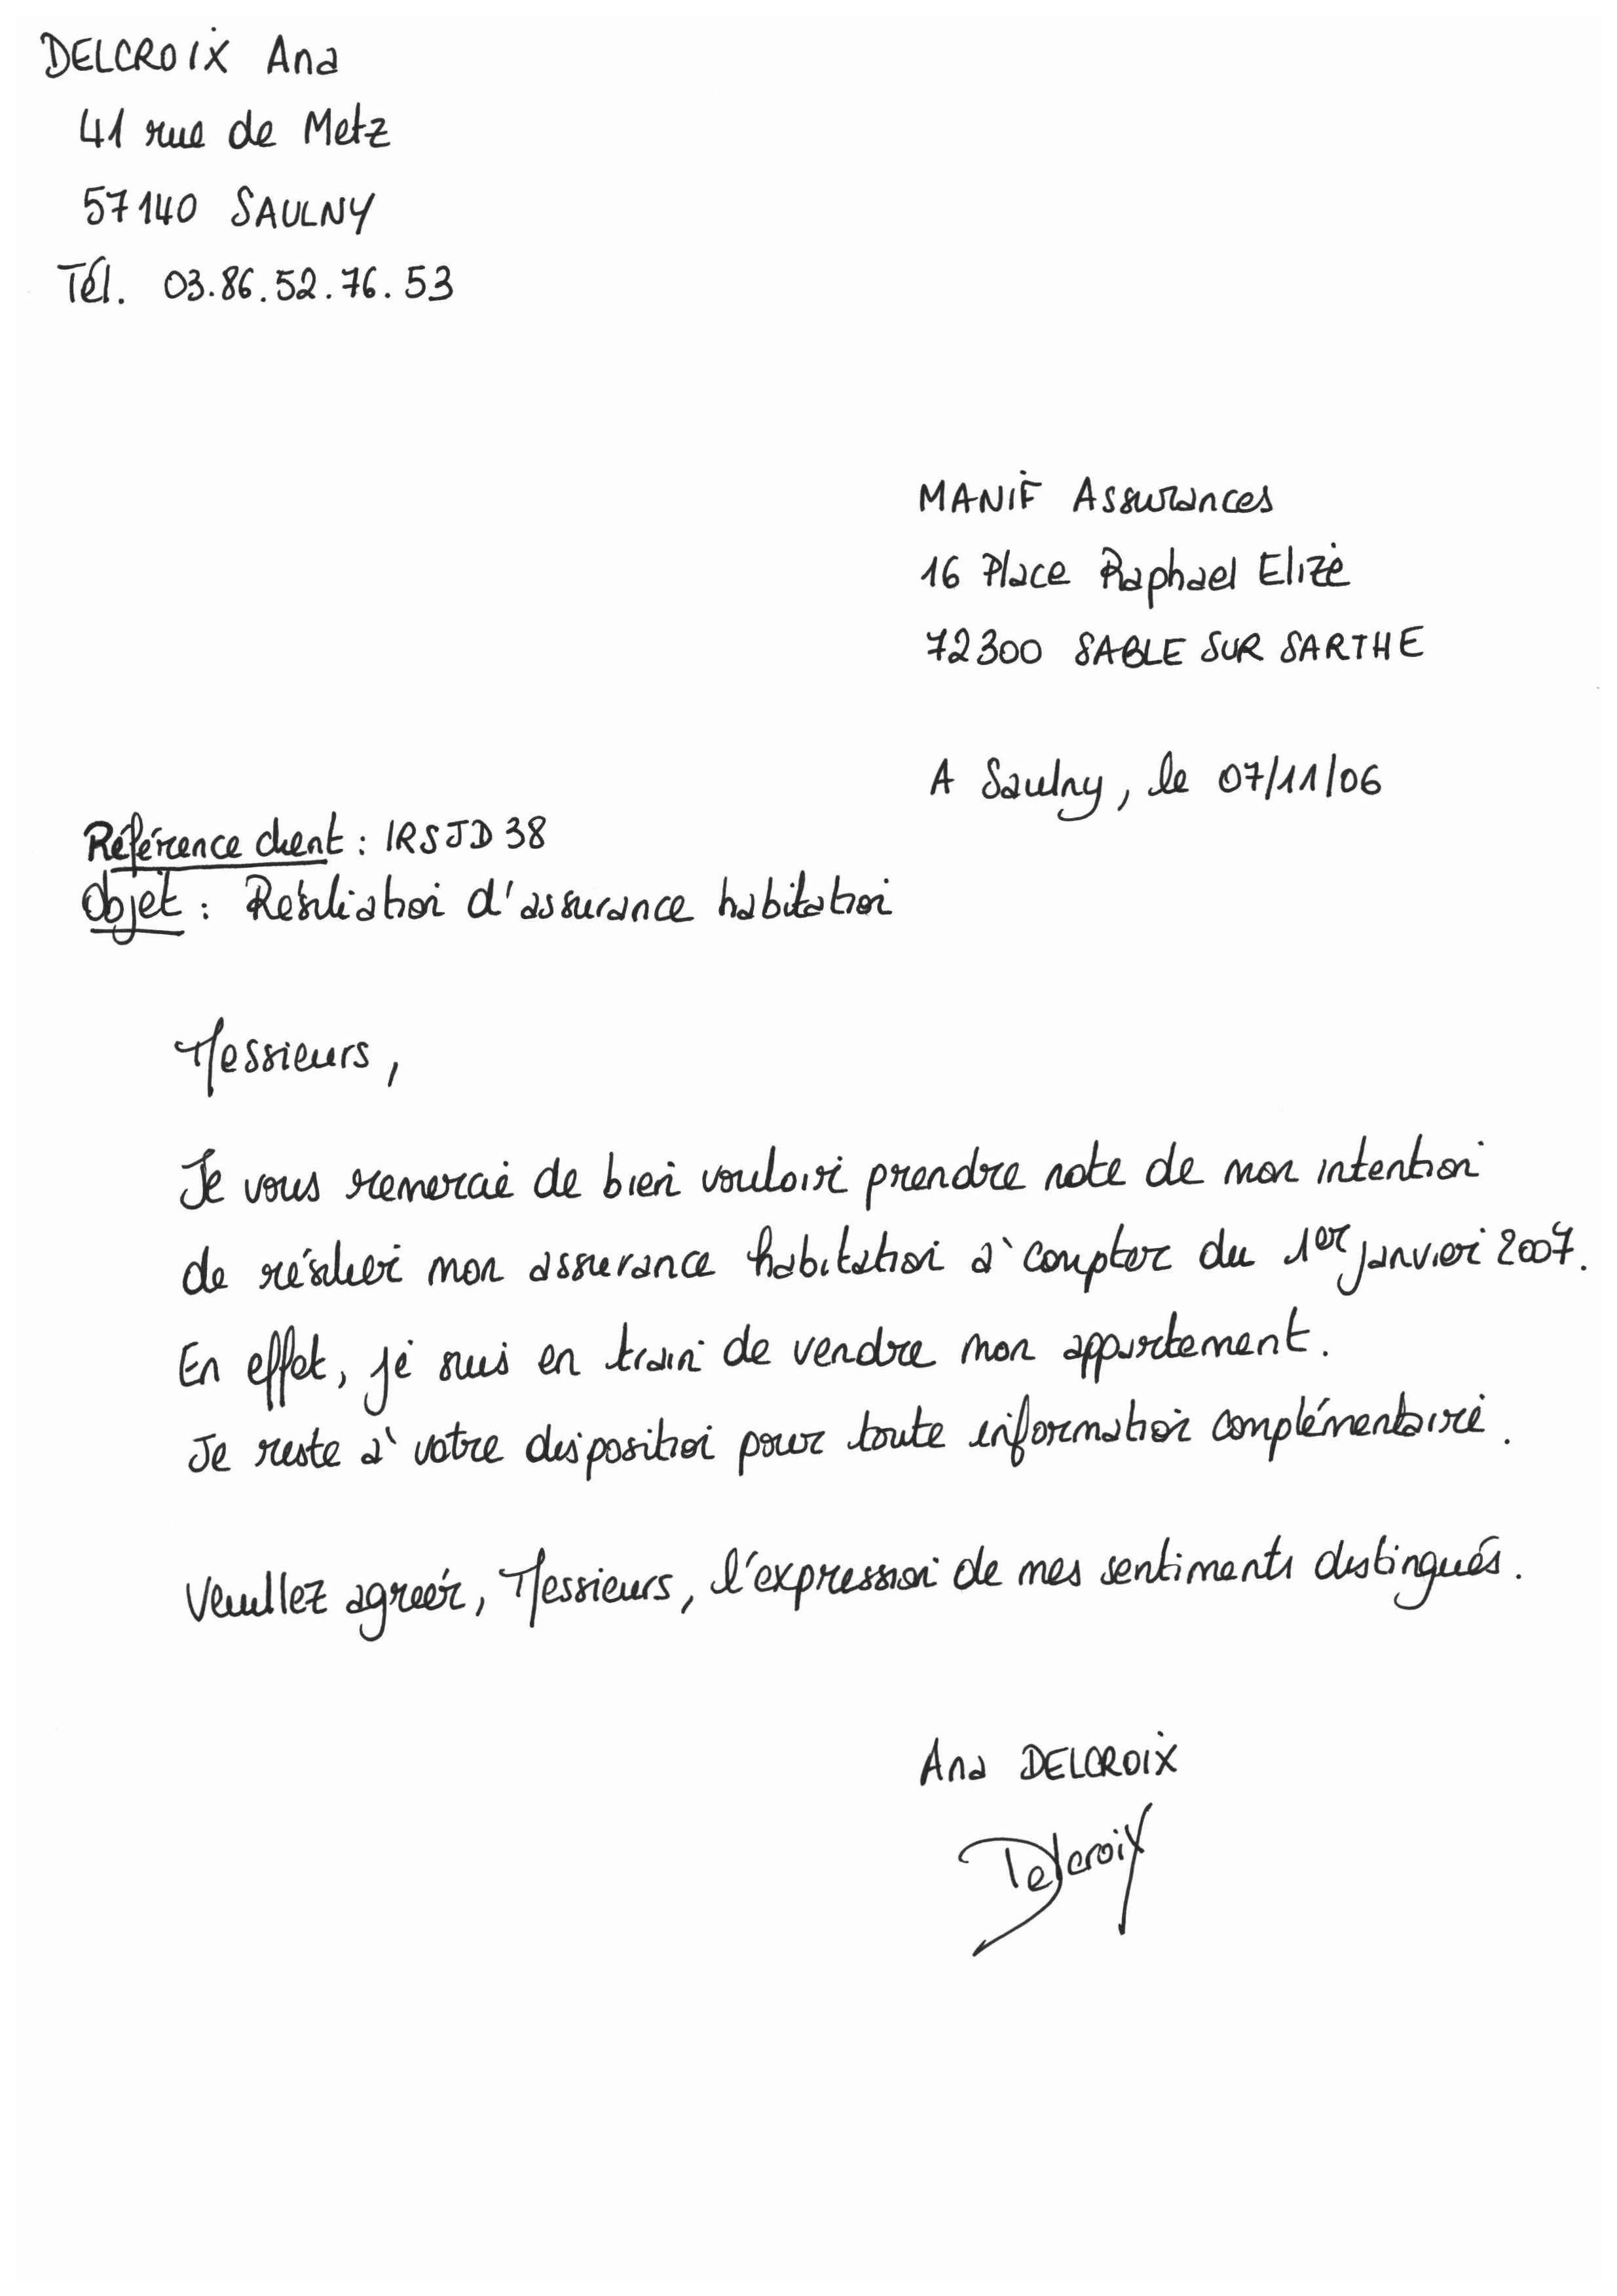 DELCROIX Ana
41 rue de Metz
57140 SAULNY
Tél. 03.86.52.76.53
MANIF Assurances
16 Place Raphael Elizé
72300 SABLE SUR SARTHE
A Saulny, le 07/11/06
Référence client : IRSJD38
Objet : Résiliation d'assurance habitation
Messieurs,
Je vous remercie de bien vouloir prendre note de mon intention
de résilier mon assurance habitation à compter du 1er janvier 2007.
En effet, je suis en train de vendre mon appartement.
Je reste à votre disposition pour toute information complémentaire.
Veuillez agréer, Messieurs, l'expression de mes sentiments distingués.
Ana DELCROIX
Delcroix